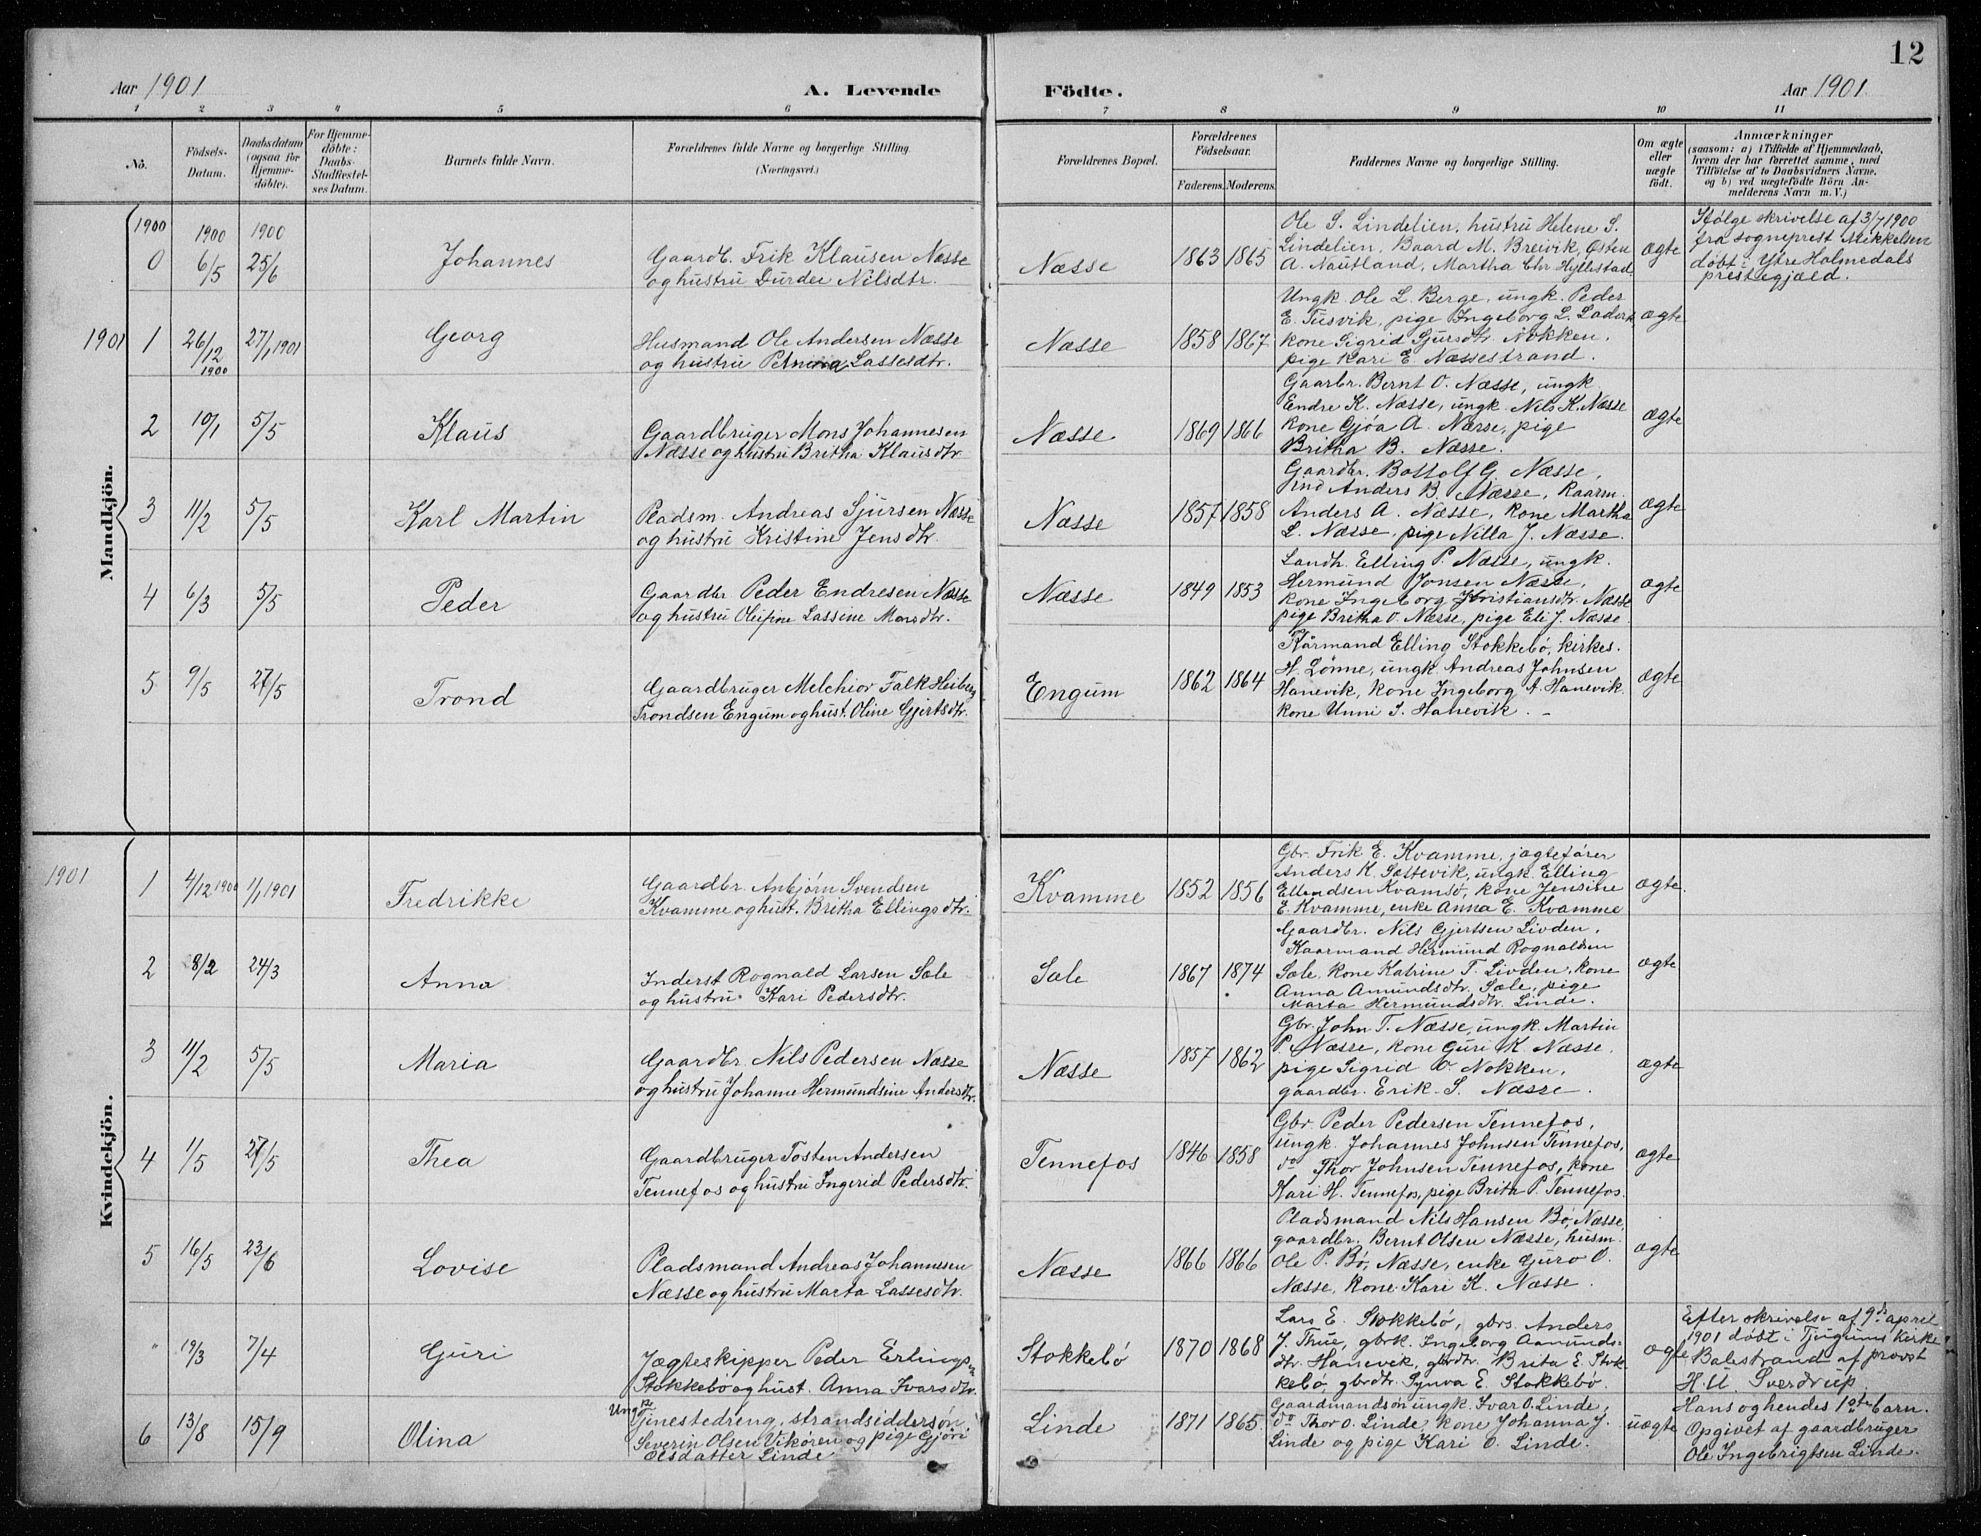 12
Aar 1901
A. Levende
Födte.
Aar 1901
1 2 3 4 5 6 7 8 9 10 11
No.
Födsels-
Datum.
Daabsdatum
(ogsaa for
Hjemme-
döbte).
For Hjemme-
döbte:
Daabs-
Stadfæstel-
ses Datum.
Barnets fulde Navn.
Forældrenes fulde Navne og borgerlige Stilling.
(Næringsvei.)
Forældrenes Bopæl.
Forældrenes
Födselsaar.
Faderens.
Moderens.
Faddernes Navne og borgerlige Stilling.
Om ægte
eller
uægte
födt.
Anmærkninger
(saasom: a) i Tilfælde af Hjemmedaab,
hvem der har forrettet samme, med
Tilföielse af to Daabsvidners Navne,
og b) ved uægtefödte Börn An-
melderens Navn m. V.)
Mandkjön.
1900
0
1900
6/5
1900
25/6
Johannes
Gaardb. Erik Klausen Næsse
og hustru Durdei Nilsdtr.
Næsse
1863 1865
Ole S. Lindelien, hustru Helene S.
Lindelien, Baard M. Breivik, Østen
A. Nautland, Martha Chr Hyllestad.
ægte
Ifølge skrivelse af 3/7 1900
fra sogneprest Mikkelsen
døbt i Ytre Holmedals
prestegjæld.
1901
1
26/12 1900
27/1 1901
Georg
Husmand Ole Andersen Næsse
og hustru Lassesdtr.
Næsse
1858 1867
Ungk. Ole L. Berge, ungk. Peder
E. Tusvik, pige Ingeborg L.
kone Sigrid Sjursdtr. Nokken,
pige Kari E. Næssestrand.
ægte
2
10/1
5/5
Klaus
Gaardbruger Mons Johannesen
Næsse og hustru Britha Klausdtr.
Næsse
1869 1866
Gaarbr. Bernt O. Næsse, ungk.
Endre K. Næsse, ungk. Nils K. Næsse
kone Gjøa A. Næsse, pige
Britha B. Næsse.
ægte
3
11/2
5/5
Karl Martin
Pladsm. Andreas Sjursen Næsse
og hustru Kristine Jensdtr.
Næsse
1857 1858
Gaardbr. Bottolf G. Næsse,
ind Anders B. Næsse, Kaarm.
Anders A. Næsse, kone Martha
L. Næsse, pige Nilla J. Næsse.
ægte
4
6/3
5/5
Peder
Gaardbr Peder Endresen Næsse
og hustru Lassine Monsdtr.
Næsse
1849 1853
Landh. Elling P. Næsse, ungk.
Hermund Jonsen Næsse,
kone Ingeborg Kristiansdtr. Næsse
pige Britha O. Næsse, pige Eli J. Næsse
ægte
5
9/5
27/5
Trond
Gaardbruger Melchior Falk Heiberg
Trondsen Engum og hust. Oline Gjertsdtr.
Engum
1862 1864
Kårmand Elling Stokkebø, kirkes.
H. Lønne, ungk. Andreas Johnsen
Hanevik, kone Ingeborg A. Hanevik.
kone Unni J. Hanevik. –
ægte
Kvindekjön.
1901
1
4/12 1900
1/1 1901
Fredrikke
Gaardbr. Anbjørn Svendsen
Kvamme og hust. Britha Ellingsdtr.
Kvamme
1852 1856
Gbr. Erik E. Kvamme, jagtefører
Anders K. Sættevik, ungk. Elling
Ellendsen Kvamsø, kone Jensine
E. Kvamme, enke Anna E. Kvamme
ægte.
2
8/2
24/3
Anna
Inderst Rognald Larsen Sæle
og hustru Kari Pedersdtr.
Sæle
1867 1874
Gaardbr. Nils Gjertsen Livden,
Kaarmand Hermund Rognaldsen
Sæle, kone Katrine T. Livden, kone
Anna Amundsdtr. Sæle, pige
Marta Hermundsdtr. Linde.
ægte
3
11/2
5/5
Maria
Gaardbr Nils Pedersen Næsse
og hustru Johanne Hermundsine Andersdtr.
Næsse
1857 1862
Gbr. John T. Næsse, ungk. Martin
P. Næsse, kone Guri K. Næsse.
pige Sigrid O. Nokken,
gaardbr. Erik S. Næsse.
ægte
4
1/5
27/5
Thea
Gaardbruger Tosten Andersen
Tennefos og hustru Ingerid Pedersdtr.
Tennefos
1846 1858
Gbr Peder Pedersen Tennefos,
ungk. Johannes Johnsen Tennefos,
do Thor Johnsen Tennefos, kone
Kari H. Tennefos, pige Brita P. Tennefos.
ægte
5
16/5
23/6
Lovise
Pladsmand Andreas Johannesen
Næsse og hustru Marta Lassesdtr.
Næsse
1866 1866
Pladsmand Nils Hansen Bø, Næsse,
gaardbr. Bernt Olsen Næsse, husm.
Ole P. Bø, Næsse, enke Guro O.
Næsse, kone Kari K. Næsse.
ægte
"
19/3
7/4
Guri
Jægteskipper Peder Erlingsen
Stokkebø og hust. Anna Ivarsdtr.
Stokkebø
1870 1868
Lars E. Stokkebø, gbrs. Anders
J. Thue, gbrk. Ingeborg Aamunds-
dtr. Hanevik, gbrdtr. Brita E. Stok-
kebø, gbrdtr. Synva E. Stokkebø.
ægte
Efter skrivelse af 9de april
1901 døbt i Tjugums kirke
Balestrand af provst
H. U. Sverdrup.
6
13/8
15/9
Olina
Ungk.
Tjenestedreng, strandsiddersøn
Severin Olsen Vikøren og pige Gjøri
Olsdatter Linde
Linde
1871 1865.
Gaardmandsøn ungk. Ivar O. Linde,
do Thor O. Linde kone Johanna J.
Linde og pige Kari O. Linde.
uægte
Hans og hendes 1ste barn.
Opgivet af gaardbruger
Ole Ingebrigtsen Linde.